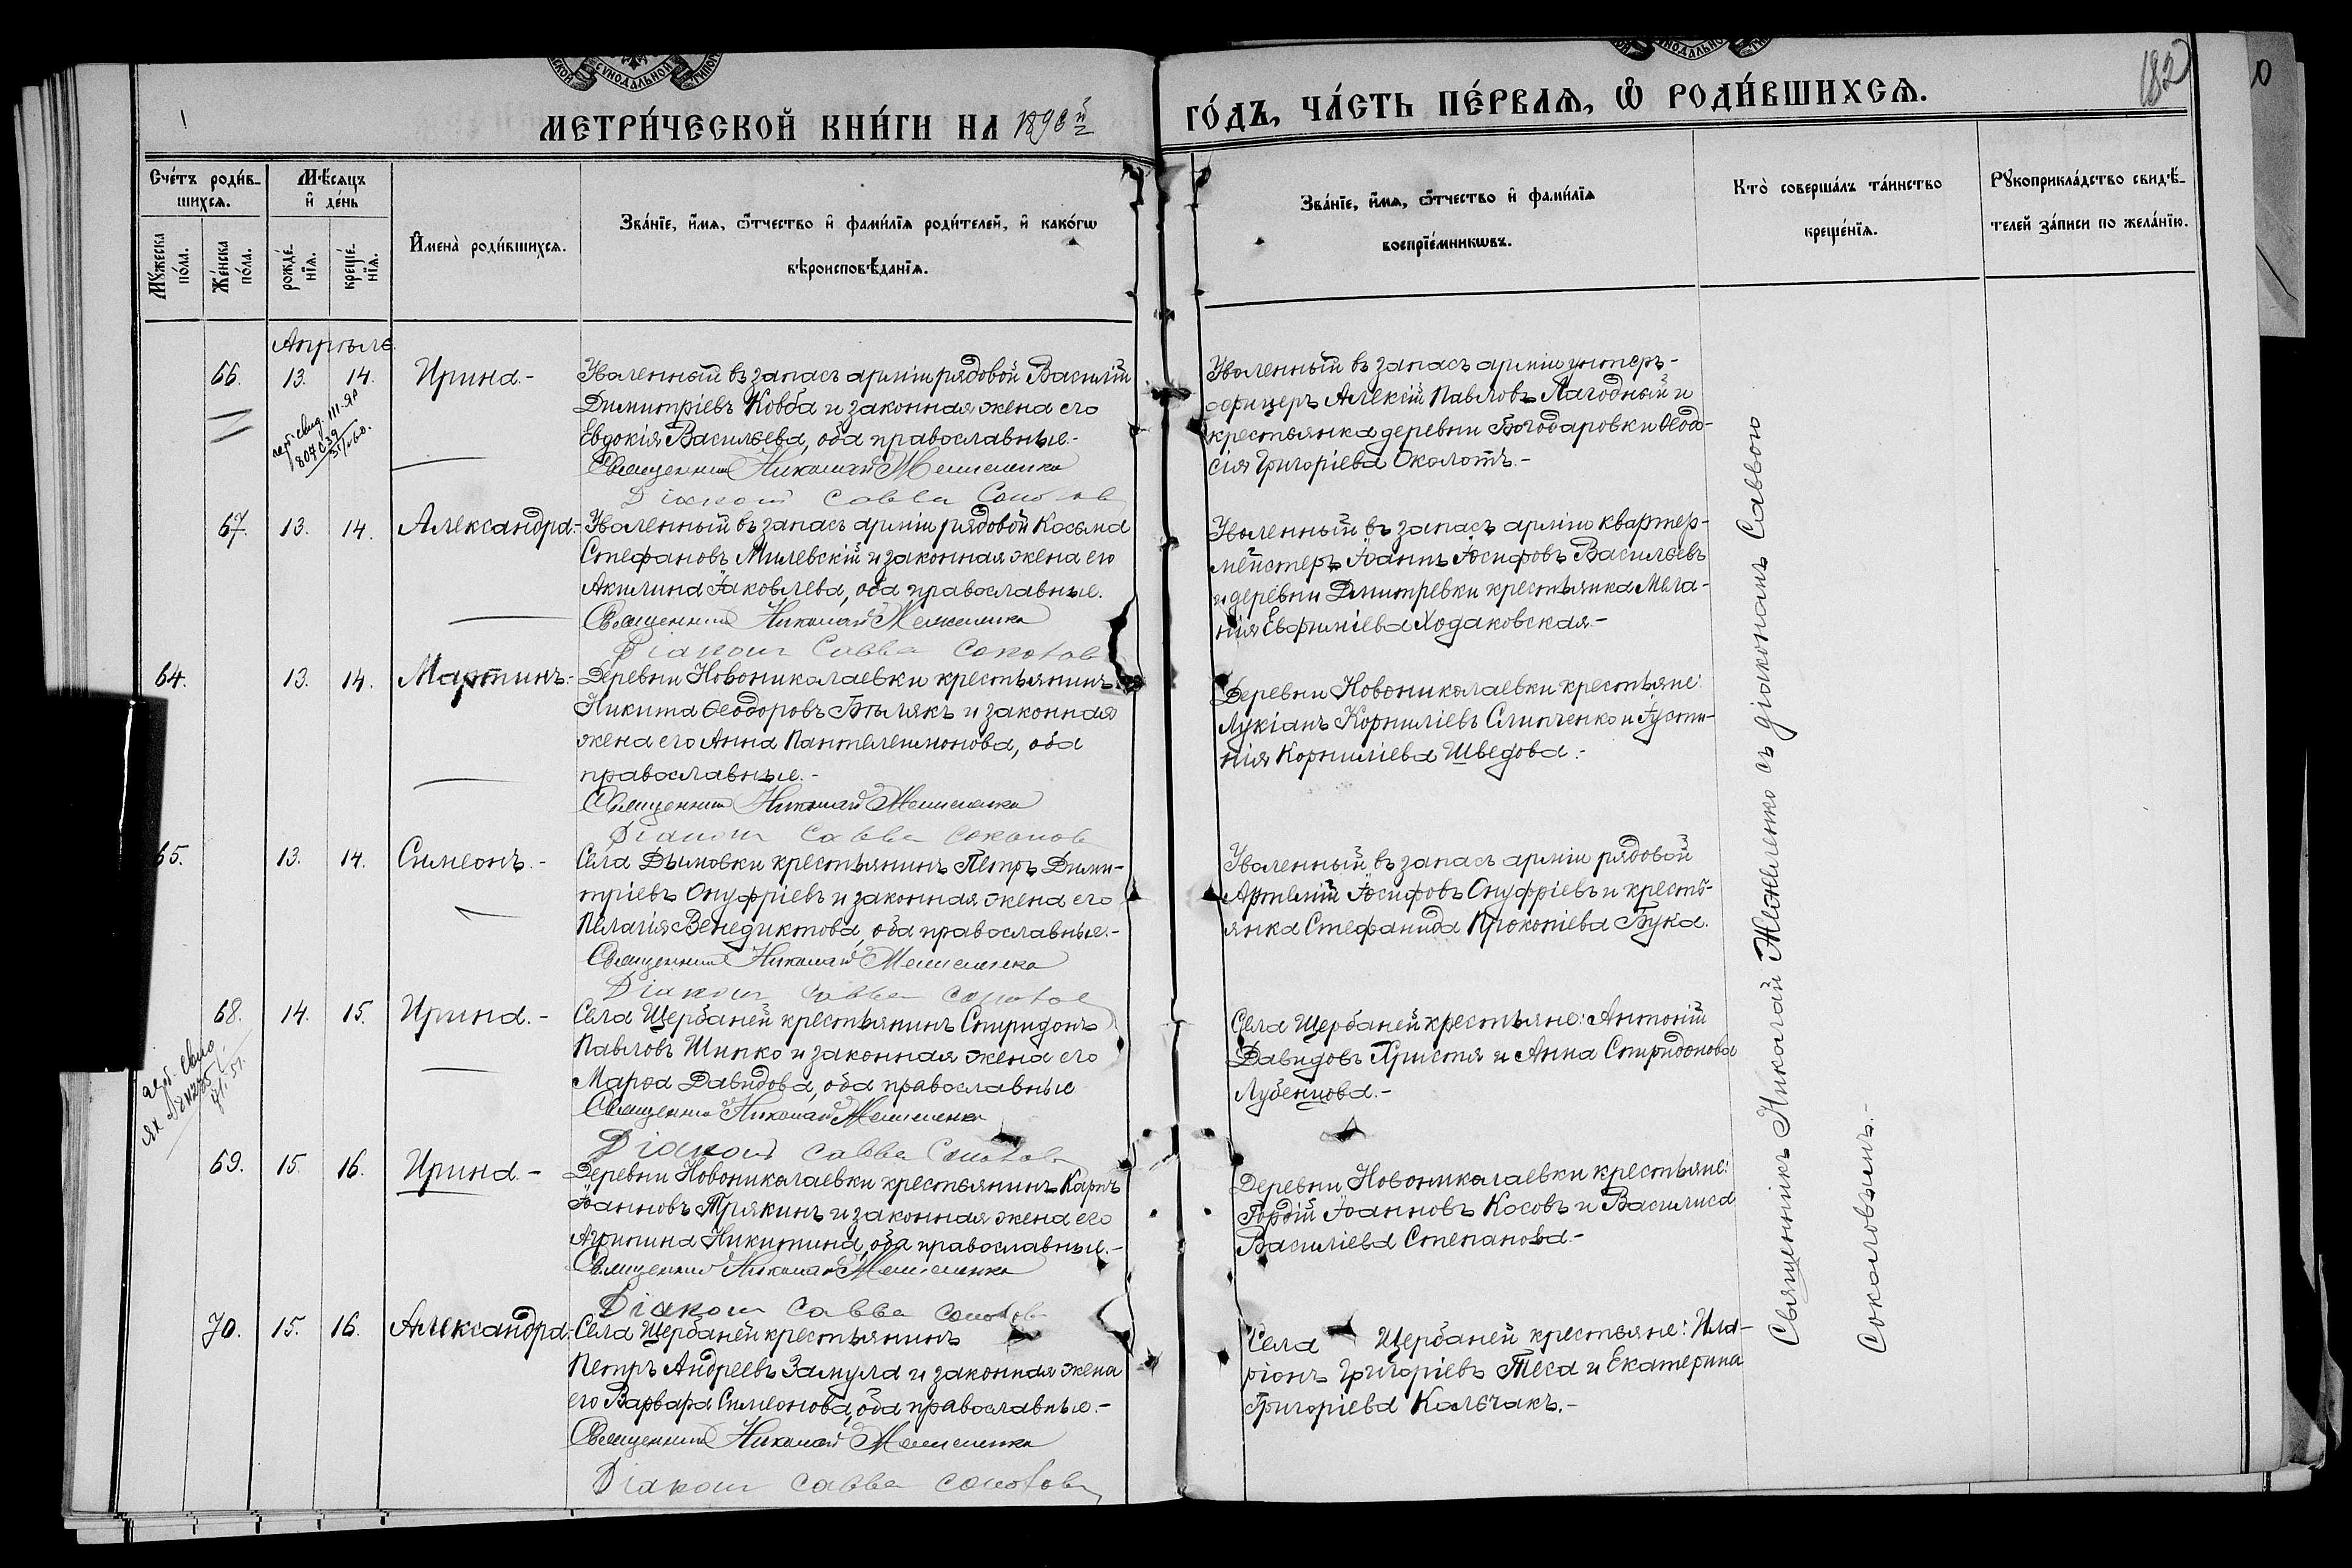 МЕТРИ́ЧЕСКОЙ КНИ́ГИ НА 1898й
ГО́ДЪ, ЧА́СТЬ ПЕ́РВАѦ, Ѽ РОДИ́ВШИХСѦ.
182
Сче́тъ роди́в-
шихсѧ.
Мѣ́сѧцъ
и де́нь
Мꙋ́жеска по́ла.
Же́нска по́ла.
рожде́-
нїѧ.
креще́-
нїѧ.
И҆мена̀ роди́вшихсѧ.
Зва́нїе, и҆́мѧ, ѻ҆́тчество и҆ фами́лїѧ роди́телей, и҆ како́гѡ
вѣроисповѣ́данїѧ.
Зва́нїе, и҆́мѧ, ѻ҆́тчество и҆ фами́лїѧ
воспрїе́мникѡвъ.
Кто̀ соверша́лъ та́инство
креще́нїѧ.
Рꙋкоприкла́дство свидѣ́-
телей за́писи по жела́нїю.
Апрѣль
66. 13. 14. Ирина.- Уволенный въ запасъ арміи рядовой Василій
Димитріевъ Ковба и законная жена его
Евдокія Васильева, оба православные.-
Священникъ Николай
Діаконъ Савва Соколовъ
Уволенный въ запасъ арміи унтеръ-
офицеръ Алексій Павловъ Лагодный и
крестьянка деревни Богодаровки Ѳеодо-
сія Григоріева Околотъ.-
67. 13. 14. Александра.- Уволенный въ запасъ арміи рядовой Косьма
Стефановъ Милевскій и законная жена его
Акилина Іаковлева, оба православные.
Священникъ Николай
Діаконъ Савва Соколовъ
Уволенный въ запасъ арміи квартер-
мейстеръ Іоаннъ Іосифовъ Васильевъ
и деревни Дмитревки крестьянка Мела-
нія Евфиміева Ходаковская.-
64. 13. 14. Мартинъ.- Деревни Новониколаевки крестьянинъ
Никита Ѳеодоровъ Бѣлякъ и законная
жена его Анна Пантелеимонова, оба
православные.-
Священникъ Николай
Діаконъ Савва Соколовъ
Деревни Новониколаевки крестьяне:
Лукіанъ Корниліевъ Слипченко и Іусти-
нія Корниліева Шведова.-
65. 13. 14. Симеонъ.- Села Дымовки крестьянинъ Петръ Дими-
тріевъ Онуфріевъ и законная жена его
Пелагія Венедиктова, оба православные.-
Священникъ Николай
Діаконъ Савва Соколовъ
Уволенный въ запасъ арміи рядовой
Артемій Іосифовъ Онуфріевъ и кресть-
янка Стефанида Прокопіева Бука.
68. 14. 15. Ирина.- Села Щербаней крестьянинъ Спиридонъ
Павловъ Шипко и законная жена его
Марѳа Давидова, оба православные
Священникъ Николай
Діаконъ Савва Соколовъ
Села Щербаней крестьяне: Антоній
Давидовъ Христя и Анна Спиридонова
Лубенцова.-
69. 15. 16. Ирина.- Деревни Новониколаевки крестьянинъ Карпъ
Іоанновъ Трякинъ и законная жена его
Агрипина Никитина, оба православные.-
Священникъ Николай
Діаконъ Савва Соколовъ
Деревни Новониколаевки крестьяне:
Гордій Іоанновъ Косовъ и Василиса
Василіева Степанова.-
70. 15. 16. Александра. Села Щербаней крестьянинъ
Петръ Андреевъ Замула и законная жена
его Варвара Симеонова, оба православные.-
Священникъ Николай
Діаконъ Савва Соколовъ
Села Щербаней крестьяне: Ила-
ріонъ Григоріевъ Теса и Екатерина
Григоріева Калєчакъ.-
Священникъ Николай съ діакономъ Саввою
Соколовымъ.-